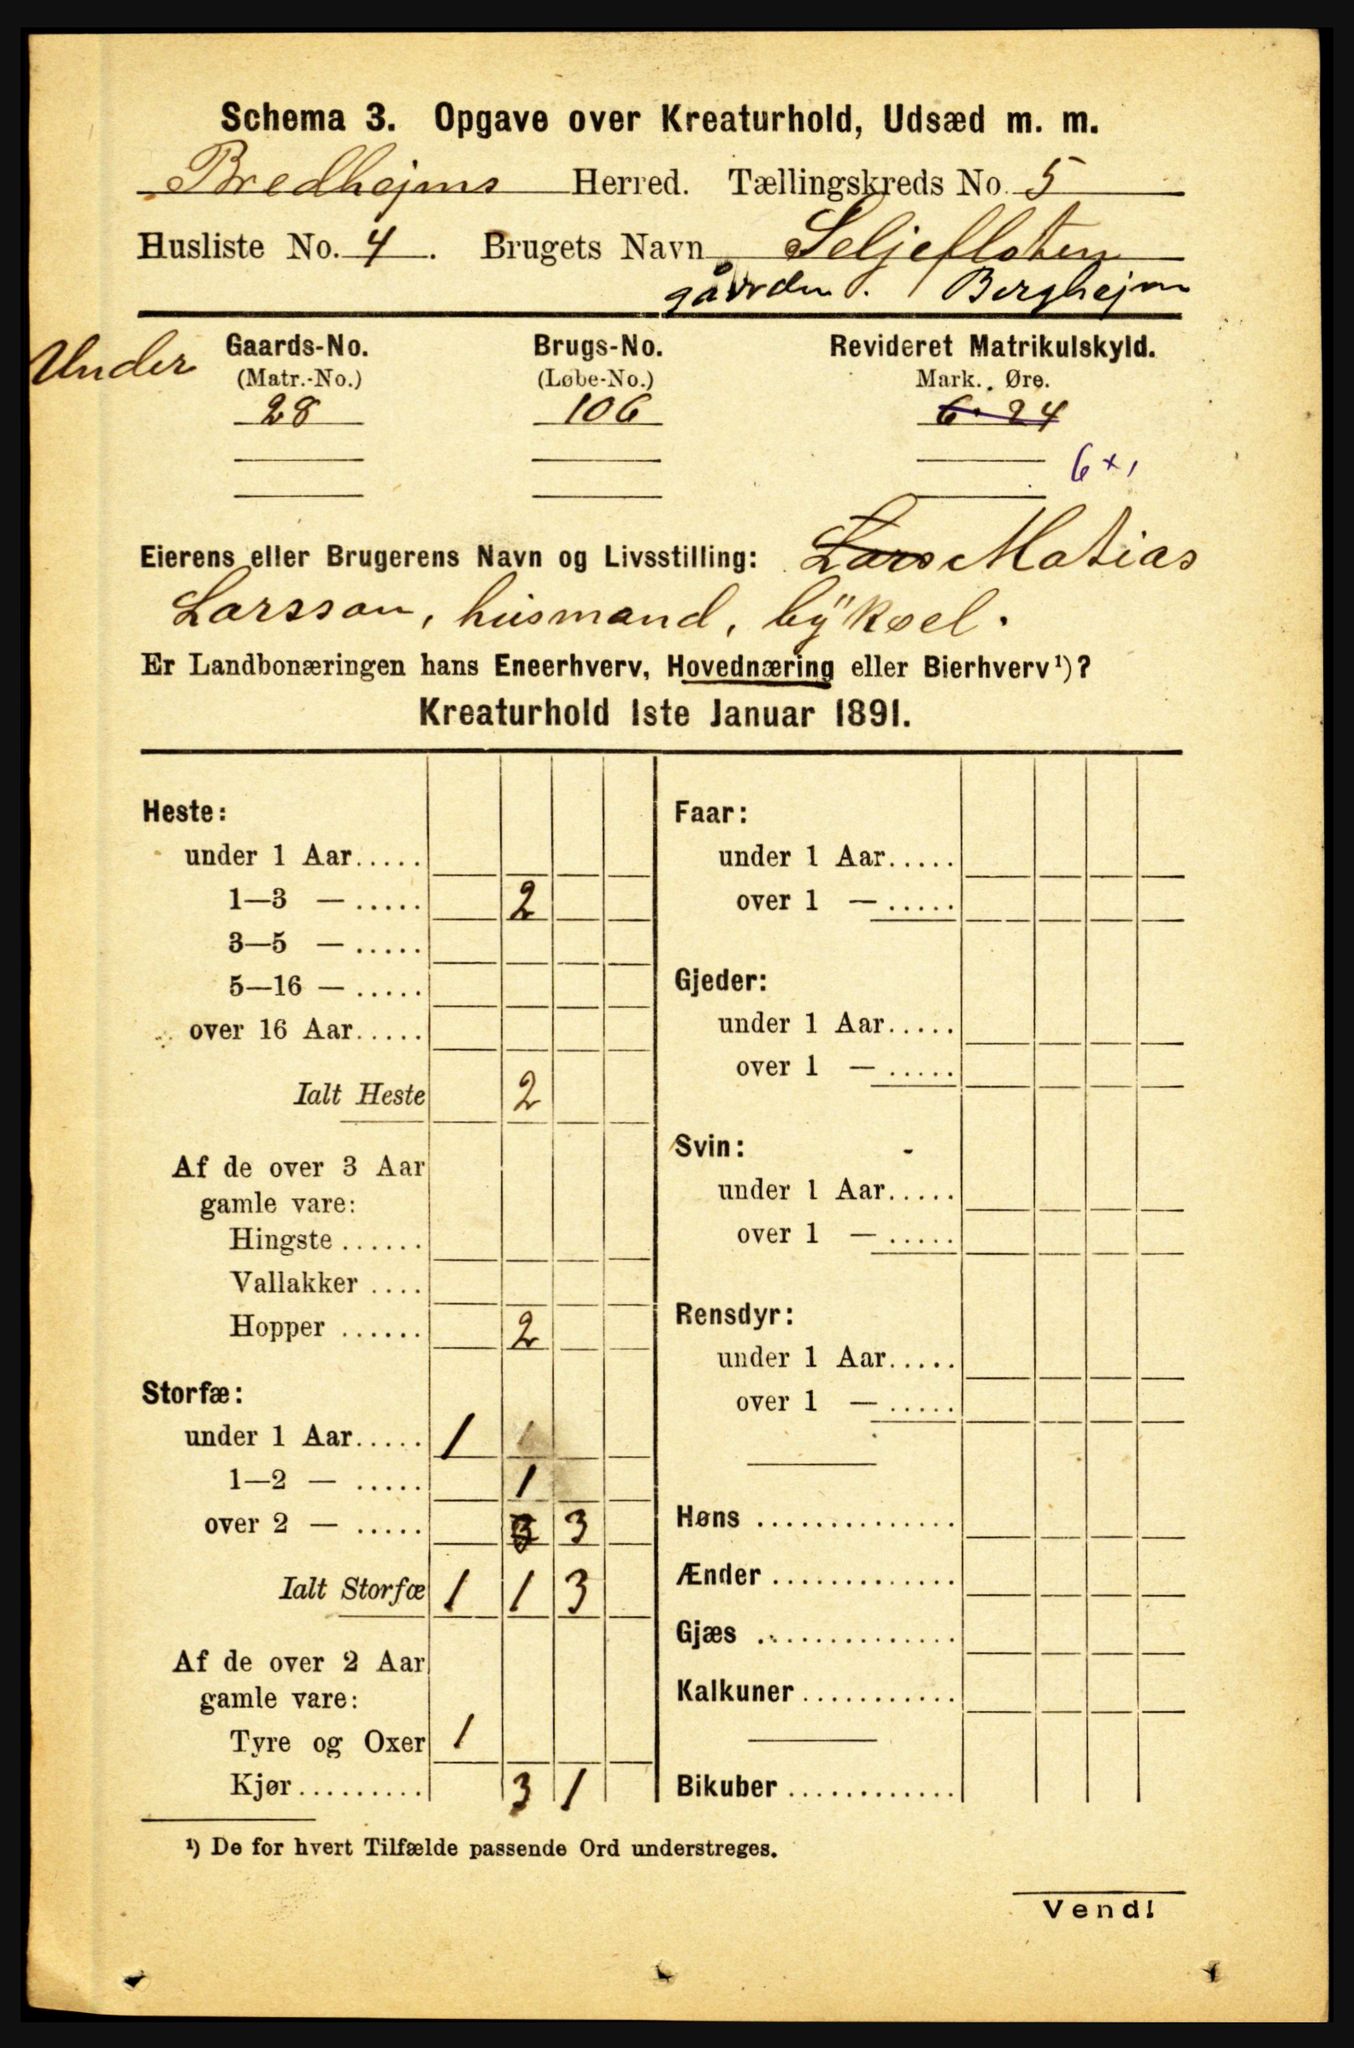 Schema 3. Opgave over Kreaturhold, Udsæd m. m.
Bredhejms Herred. Tællingskreds No. 5
Husliste No. 4. Brugets Navn Seljefloten
gåården. Berghejm
Under
Gaards-No. Brugs-No. Revideret Matrikulskyld.
(Matr.-No.) (Løbe-No.) Mark. Øre.
28 106 6. 24
6
Eierens eller Brugerens Navn og Livsstilling: Lars Matias
Larsson, husmand, bÿksel.
Er Landbonæringen hans Eneerhverv, Hovednæring eller Bierhverv ¹)?
Kreaturhold 1ste Januar 1891.
Heste:
under 1 Aar.....
1—3 — ..... 2
3—5 — .....
5—16 — .....
over 16 Aar.....
Ialt Heste 2
Af de over 3 Aar
gamle vare:
Hingste ......
Vallakker ....
Hopper ...... 2
Storfæ:
under 1 Aar..... 1
1—2 — ..... 1
over 2 — ..... 3 3
Ialt Storfæ 1 1 3
Af de over 2 Aar
gamle vare:
Tyre og Oxer 1
Kjør......... 3 1
Faar:
under 1 Aar.....
over 1 — .....
Gjeder:
under 1 Aar.....
over 1 — .....
Svin:
under 1 Aar.....
over 1 — .....
Rensdyr:
under 1 Aar.....
over 1 — .....
Høns ..............
Ænder .............
Gjæs ..............
Kalkuner...........
Bikuber ............
¹) De for hvert Tilfælde passende Ord understreges.
Vend!